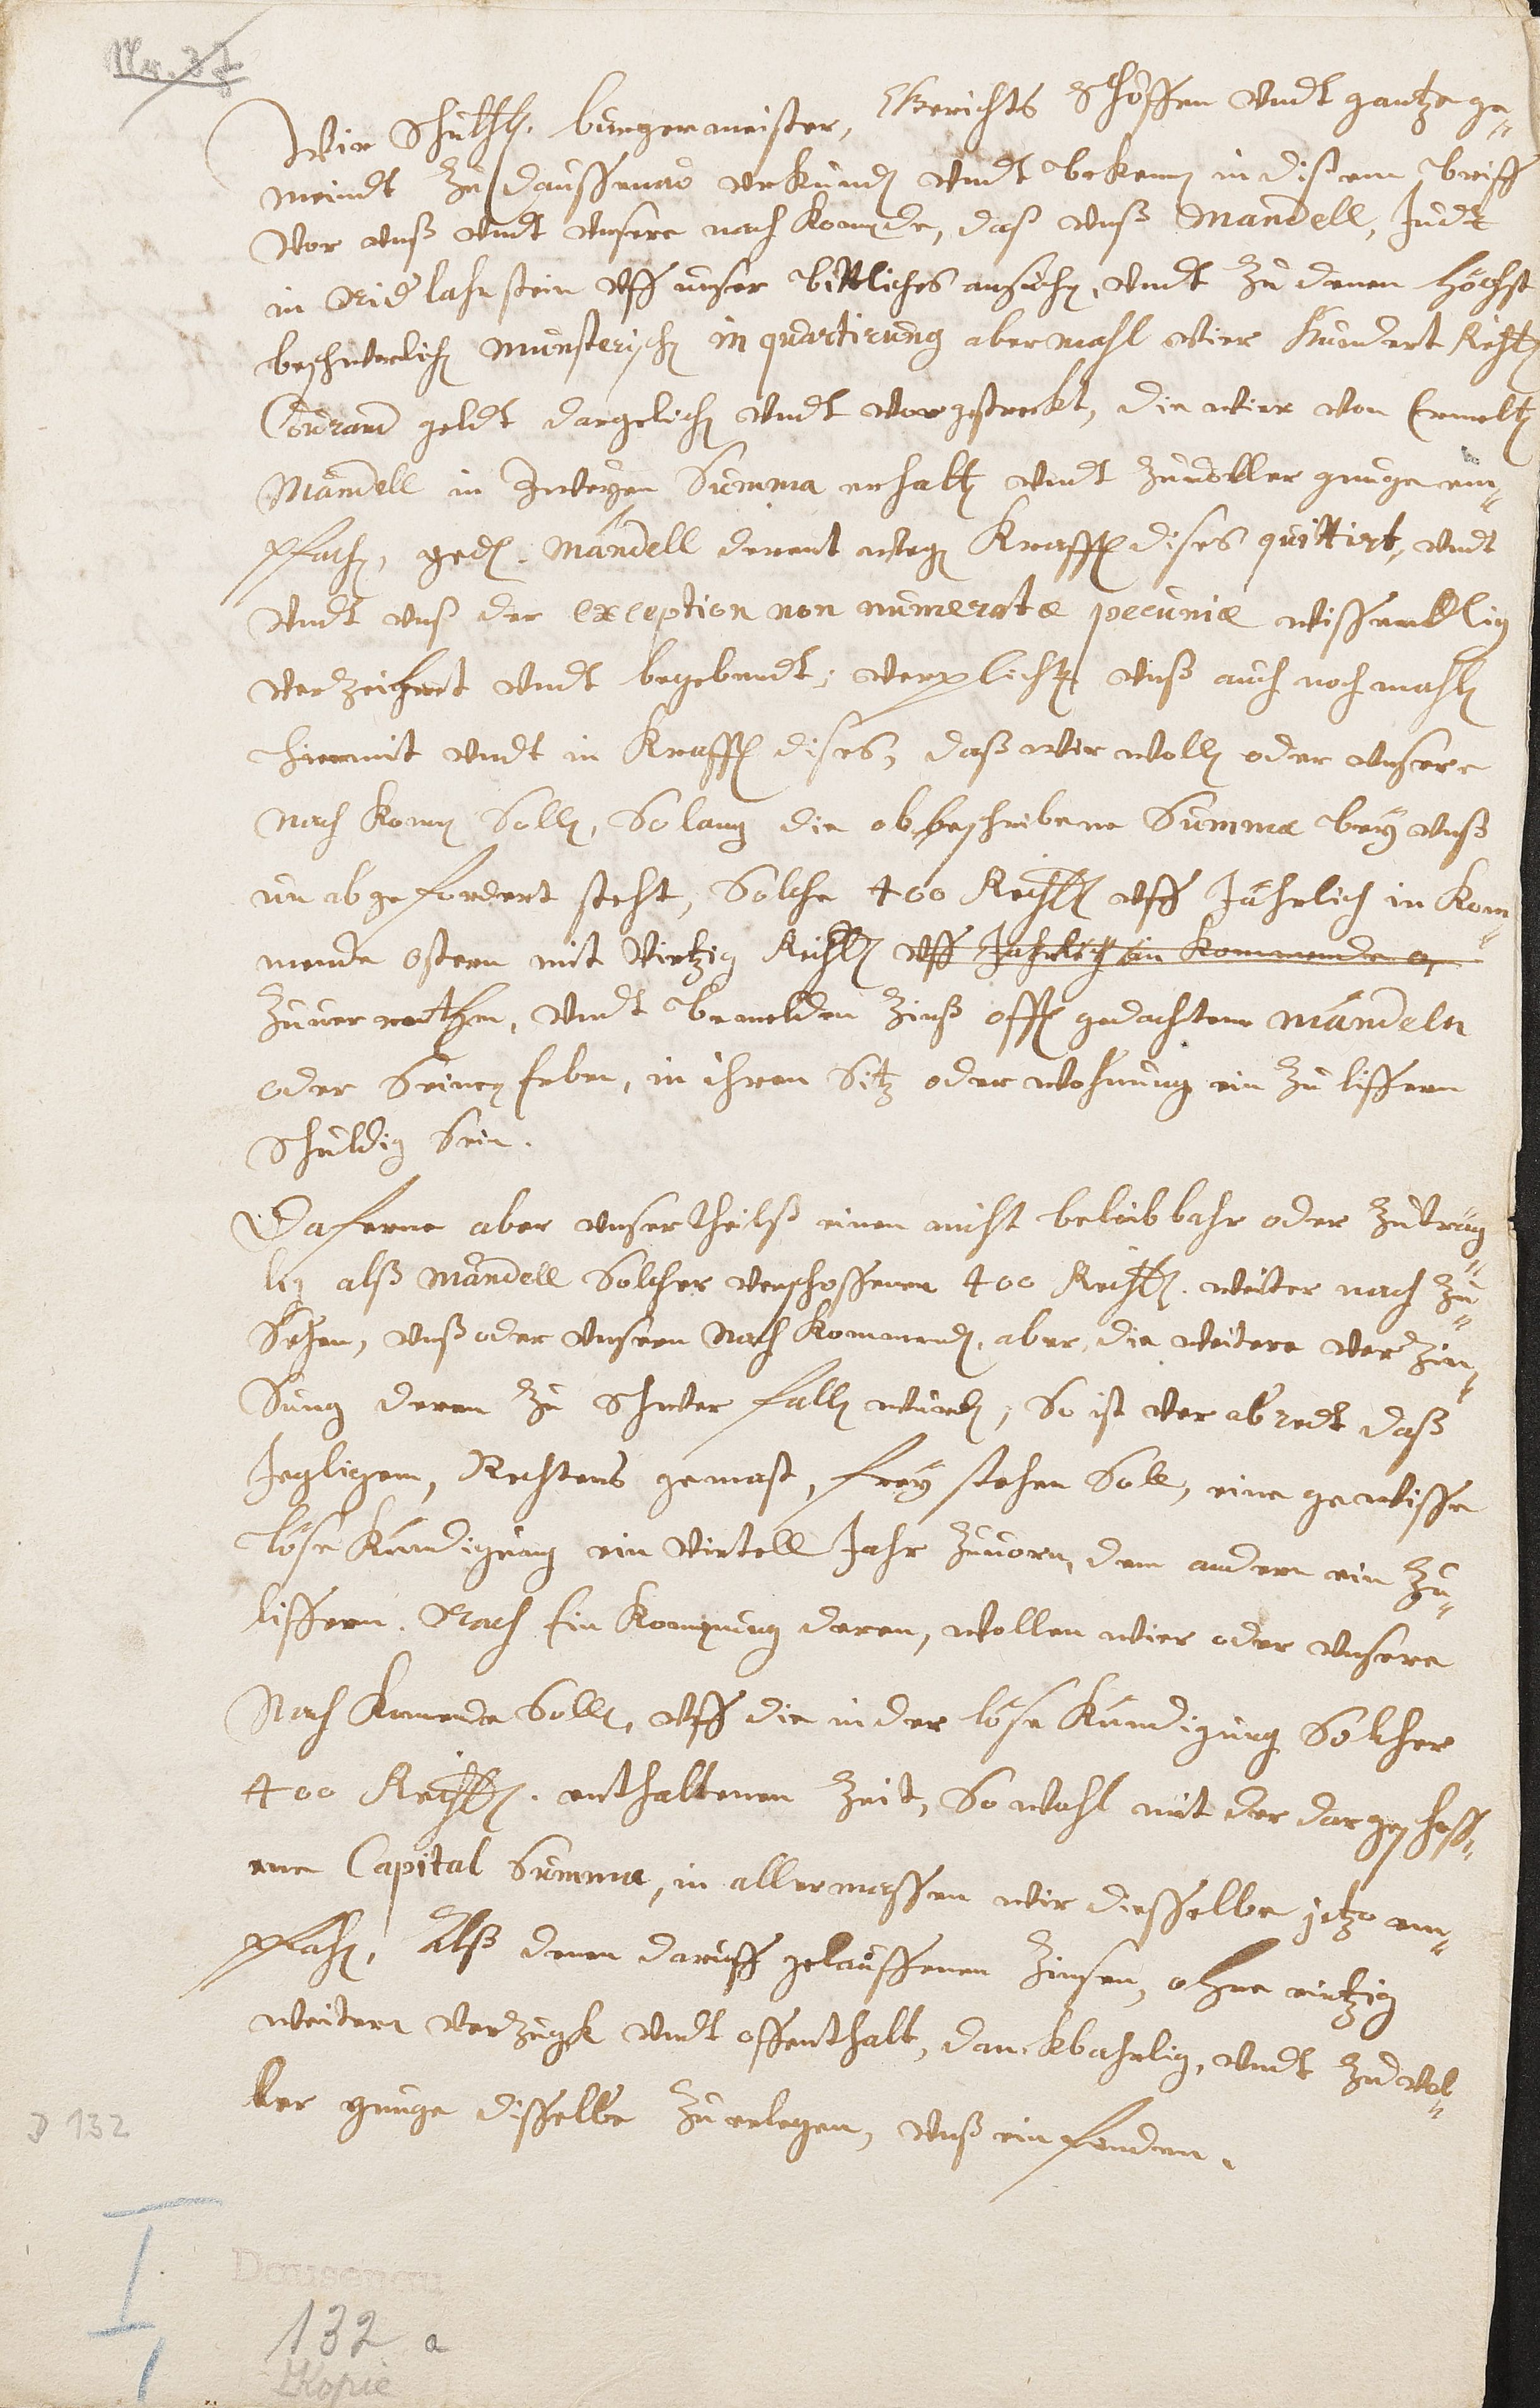 Nr. 37
Wir Schulth. burgermeister, Gerichts Schöffen undt gantze ge„
meindt zu Daussenaw urkunden undt bekenen in disem brieff
vor unß undt unsere nach komende, daß unß Mandell, Judt
in Nider lahnstein uff unser bittliches ansuchen, undt zu denen höchst
beschwerlichen munsterischen in quartirung abermahl vier hundert Richsth
Courand geldt dargelichen undt vorgestreckt, die wier von Ermelten
Mandell in zweyen Summa erhalten undt zu voller gnuge em„
pfachen, geden. Mandell derent wegen Krafft dises quittirt, undt
undt unß der exception non numeratæ pecuniæ wissendtlig
verzeichnet undt begebendt; verplichten unß auch noch mahlen
hiermit undt in Krafft dises, daß wir wollen oder unsere
nach komen sollen, So lang die obbeschribene Summa bey unß
un abgefordert steht, Solche 400 Richsth uff Jährlich in kom„
mende ostern mit Virtzig Richsth uff Jahrlich in kommende o,
zu verrenthen, undt bemelden Zinß offt gedachtem Mandeln
oder Seinen Erben, in ihren Sitz oder wohnung ein zu liffern
Schuldig Sein.
Daferne aber unsertheilß einen nicht beleib bahr oder zuträg„
lig alß Mandell Solcher verschossenen 400 Richsth. weiter nach zu„
Sehen, unß oder unsern Nach kommenden, aber, die weitere verzin„
Sung deren zu Schwer fallen wurden, So ist verabredt daß
Jegligem, Rechtens gemäst, frey stehen Soll, eine gewisse
löse kündigung ein virtell Jahr zuvorn, dem andern ein zu„
liffern. Nach Ein komung deren, wollen wier oder unsere
Nach komende Sollen, uff die in der löse kündigung Solcher
400 Richsth. enthaltenen Zeit, So wohl mit der dargeschoss„
ene Capital Summa, in allermassen wir diesselbe jetzo em„
pfahen, Alß denen daruff gelauffenen Zinsen, ohne eintzig
weitern verzugk undt offenthalt, danckbahrlig, undt zu vol„
ler gnuge disselbe zu erlegen, unß ein finden.
D 132
I,
Dausenau
132 a
Kopie